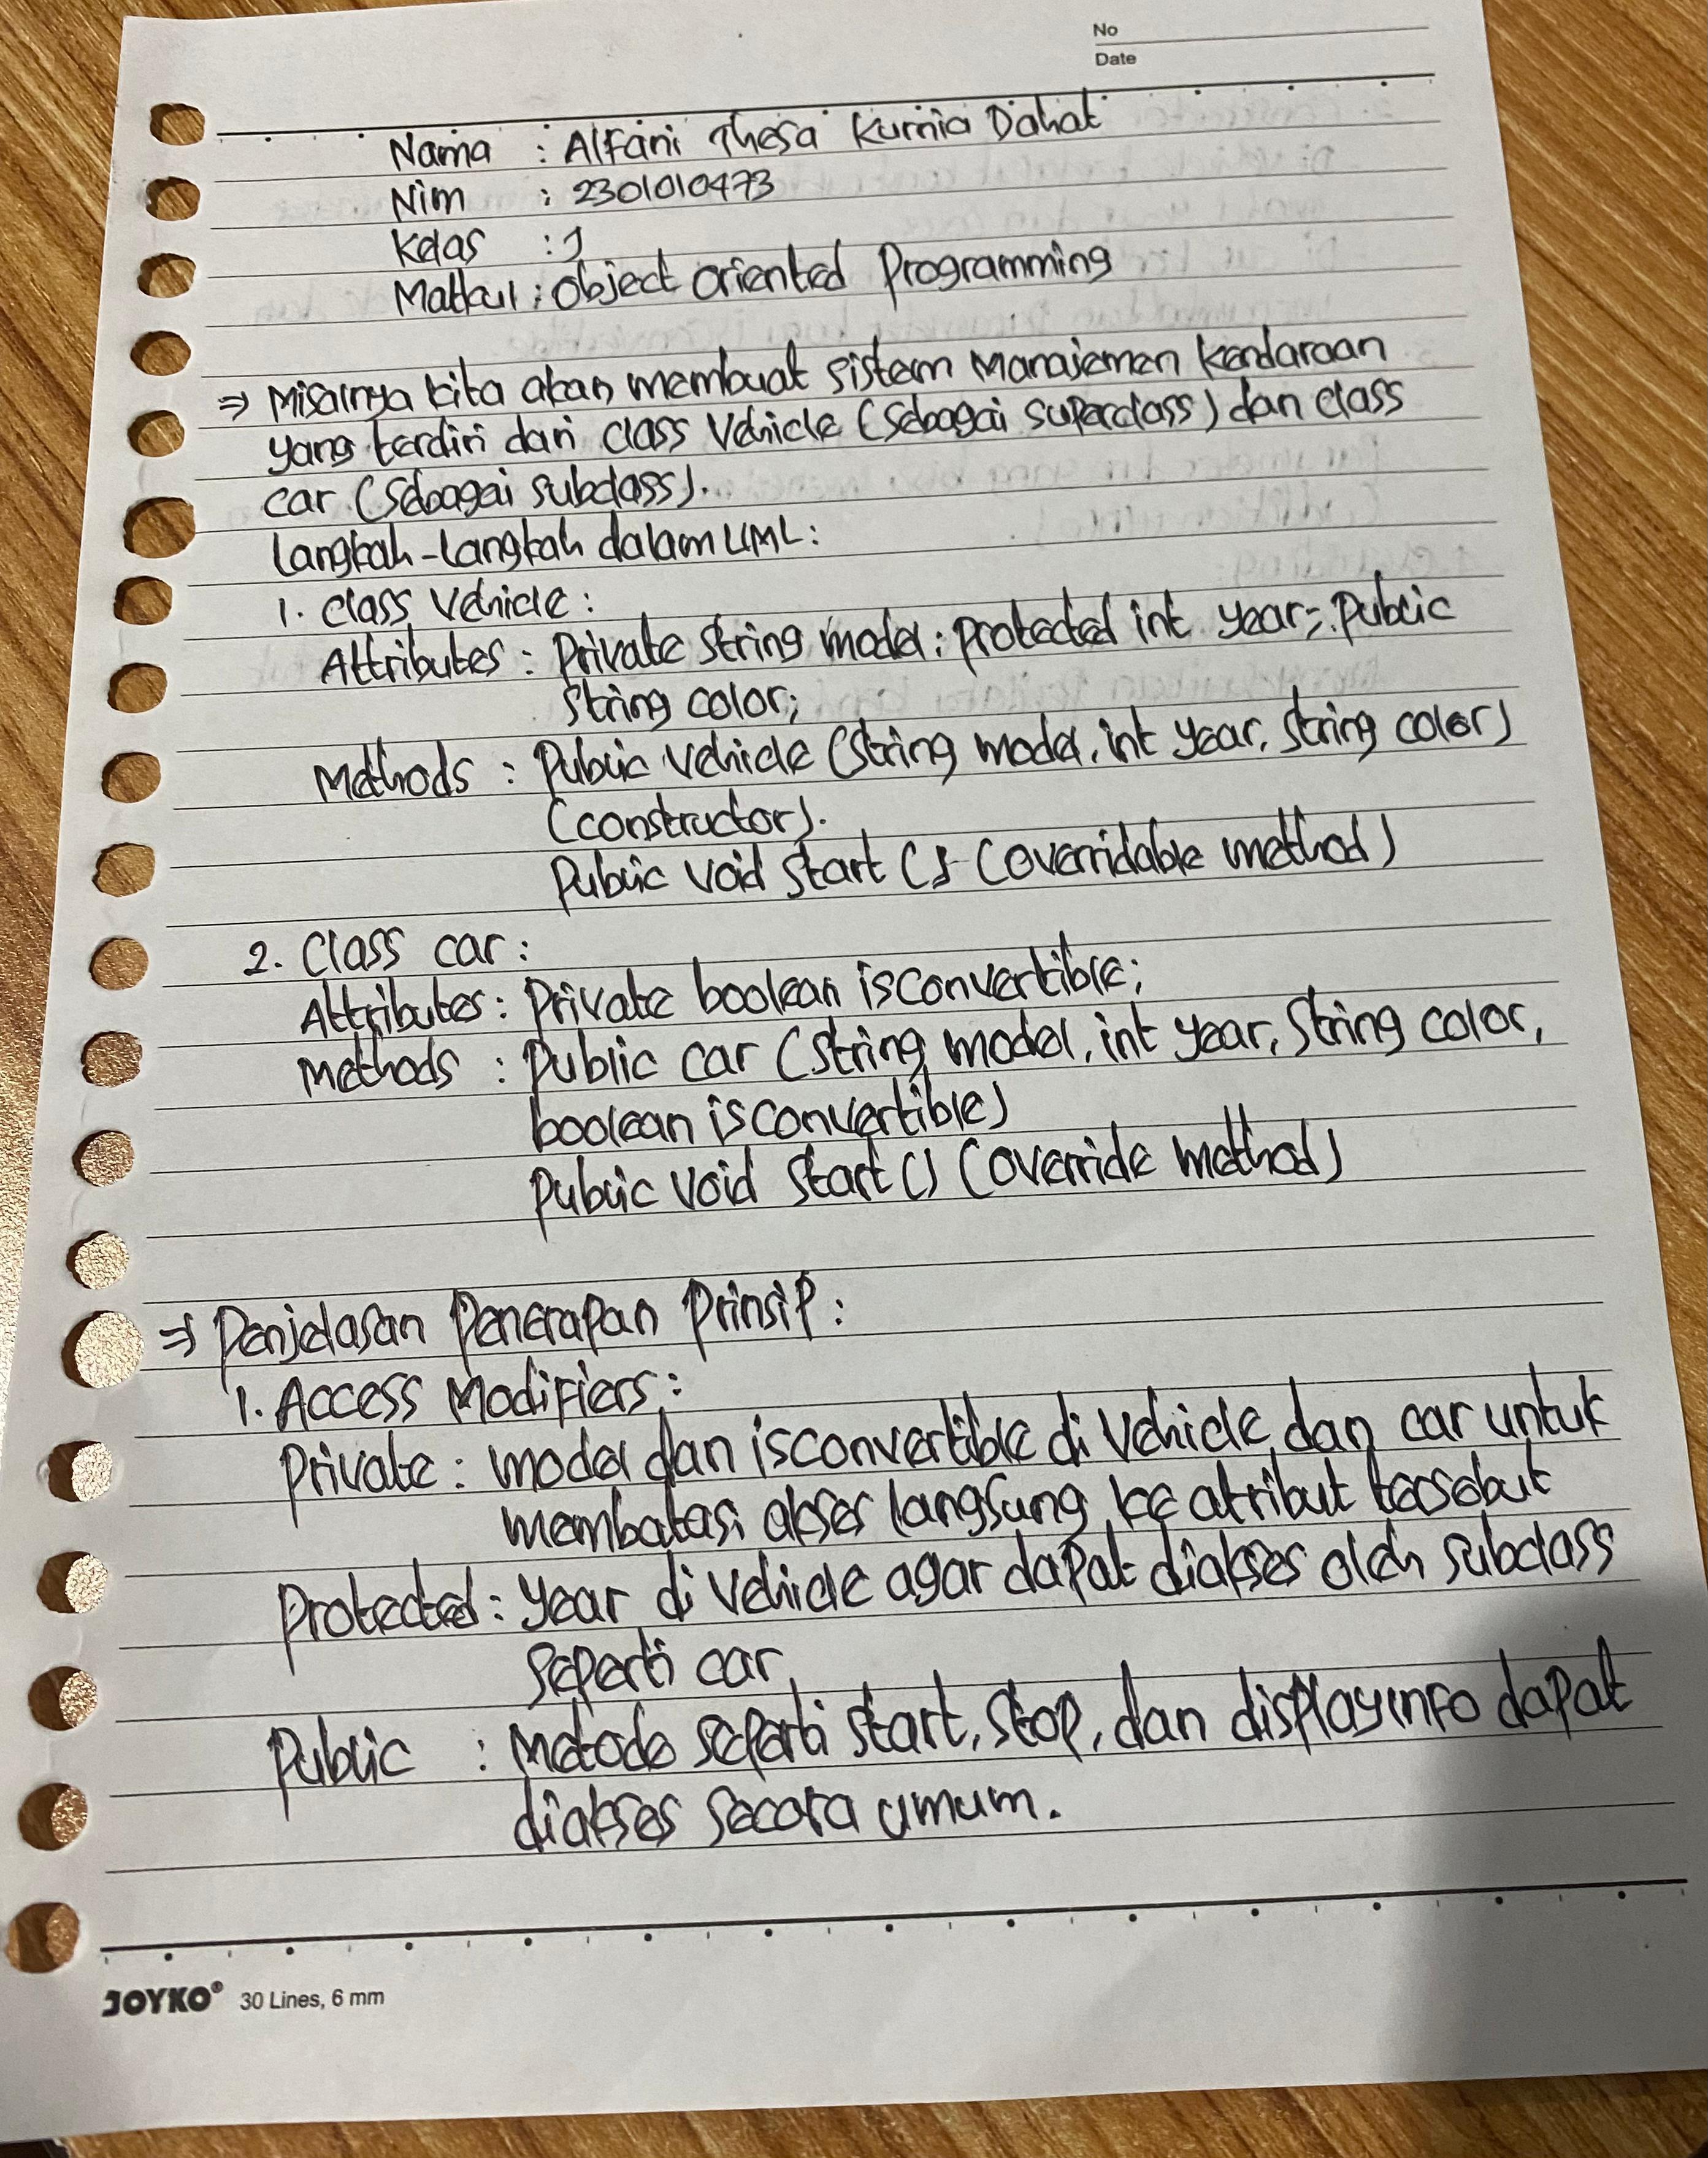 No
Date
Nama : Alfani Thesa Kurnia Dahat
Nim : 2301010473
Kelas : J
Matkul : Object oriented Programming
⇒ Misalnya kita akan membuat sistem manajemen kendaraan
yang terdiri dari class Vehicle (sebagai superclass) dan class
car (sebagai subclass).
Langkah-Langkah dalam UML:
1. Class Vehicle :
Attributes : Private string model; protected int year; public
String color;
Methods : Public Vehicle (String model, int year, String color)
(constructor).
Public void start () (overridable method)
2. Class car :
Attributes : Private boolean isconvertible;
Methods : Public car (String model, int year, String color,
boolean isconvertible)
Public void start () (override method)
⇒ Penjelasan Penerapan Prinsip :
1. Access Modifiers :
Private : model dan isconvertible di Vehicle dan car untuk
membatasi akses langsung ke atribut tersebut
Protected : year di Vehicle agar dapat diakses oleh subclass
seperti car
Public : Metode seperti start, stop, dan displayinfo dapat
diakses secara umum.
JOYKO® 30 Lines, 6 mm